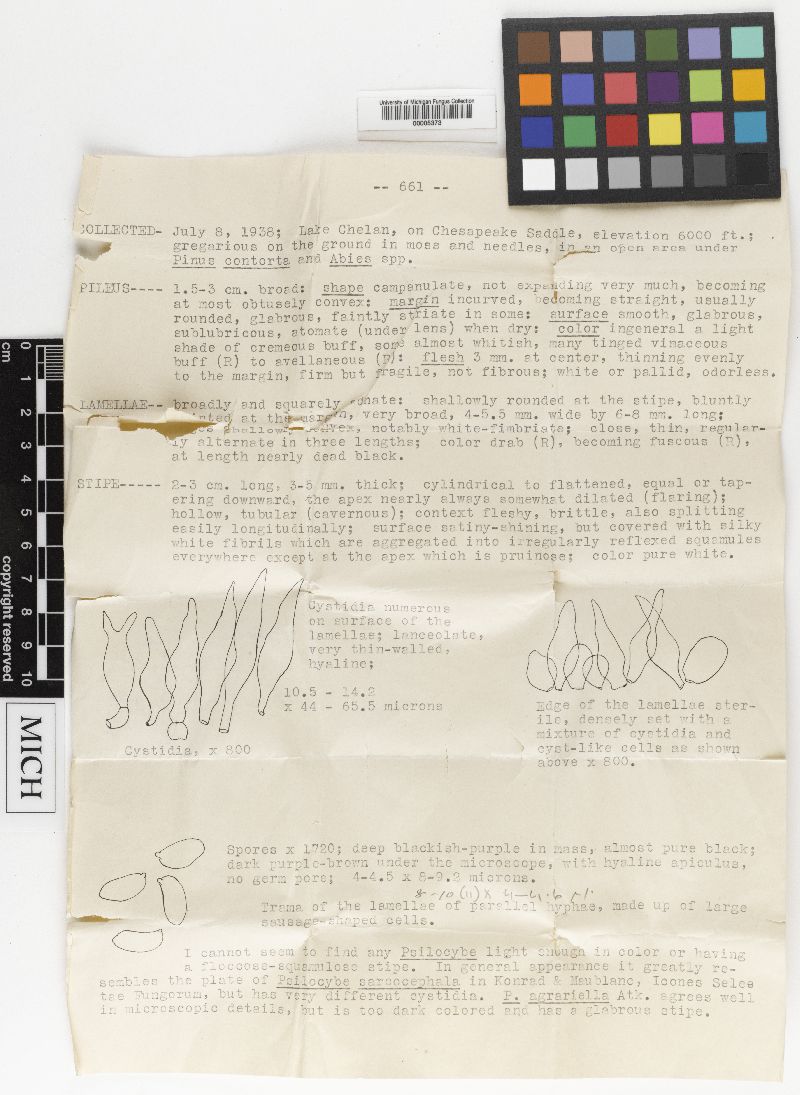 University of Michigan Fungus Collection
00005373
-- 661 --
COLLECTED- July 8, 1938; Lake Chelan, on Chesapeake Saddle, elevation 6000 ft.;
gregarious on the ground in moss and needles, in an open area under
Pinus contorta and Abies spp.
PILEUS---- 1.5-3 cm. broad: shape campanulate, not expanding very much, becoming
at most obtusely convex: margin incurved, becoming straight, usually
rounded, glabrous, faintly striate in some: surface smooth, glabrous,
sublubricous, atomate (under lens) when dry: color ingeneral a light
shade of cremeous buff, some almost whitish, many tinged vinaceous
buff (R) to avellaneous (R): flesh 3 mm. at center, thinning evenly
to the margin, firm but fragile, not fibrous; white or pallid, odorless.
LAMELLAE-- broadly and squarely adnate: shallowly rounded at the stipe, bluntly
at the margin, very broad, 4-5.5 mm. wide by 6-8 mm. long;
shallowly convex, notably white-fimbriate; close, thin, regular-
ly alternate in three lengths; color drab (R), becoming fuscous (R),
at length nearly dead black.
STIPE----- 2-3 cm. long, 3-5 mm. thick; cylindrical to flattened, equal or tap-
ering downward, the apex nearly always somewhat dilated (flaring);
hollow, tubular (cavernous); context fleshy, brittle, also splitting
easily longitudinally; surface satiny-shining, but covered with silky
white fibrils which are aggregated into irregularly reflexed squamules
everywhere except at the apex which is pruinose; color pure white.
Cystidia numerous
on surface of the
lamellae; lanceolate,
very thin-walled,
hyaline;
10.5 - 14.2
x 44 - 65.5 microns
Cystidia, x 800
Edge of the lamellae ster-
ile, densely set with a
mixture of cystidia and
cyst-like cells as shown
above x 800.
Spores x 1720; deep blackish-purple in mass, almost pure black;
dark purple-brown under the microscope, with hyaline apiculus,
no germ pore; 4-4.5 x 8-9.2 microns.
8-10 (11) x 4-4.6 µ.
Trama of the lamellae of parallel hyphae, made up of large
sausage-shaped cells.
I cannot seem to find any Psilocybe light enough in color or having
a floccose-squamulose stipe. In general appearance it greatly re-
sembles the plate of Psilocybe sarcocephala in Konrad & Maublanc, Icones Selec
tae Fungorum, but has very different cystidia. P. agrariella Atk. agrees well
in microscopic details, but is too dark colored and has a glabrous stipe.
cm
0
1
2
3
4
5
6
7
8
9
10
copyright reserved
MICH